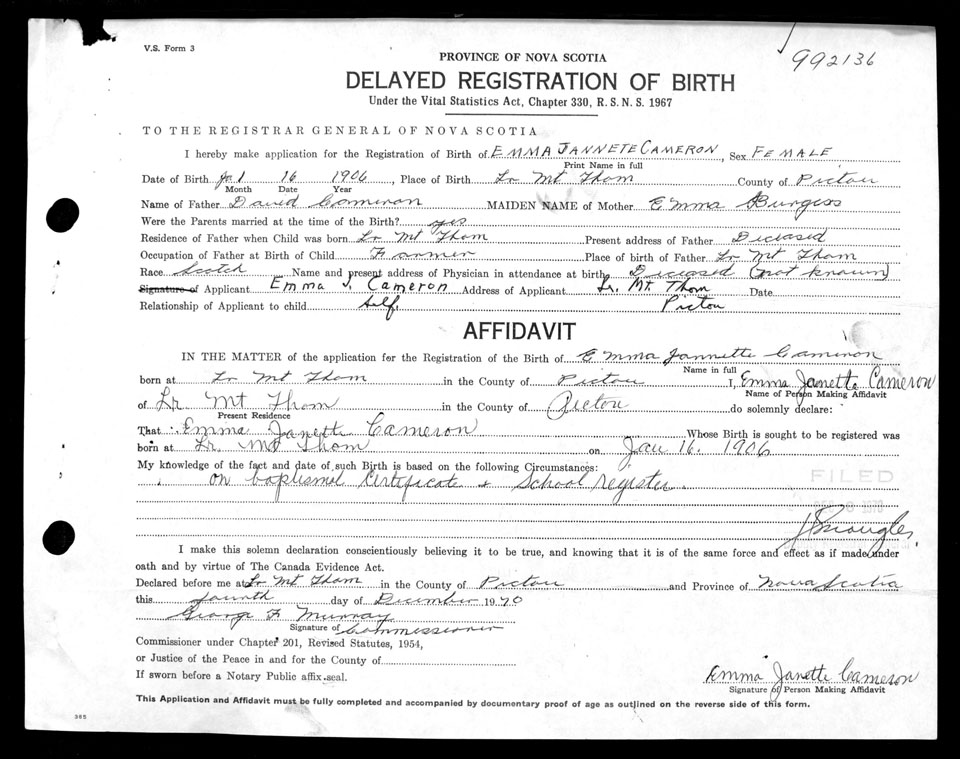 V.S. Form 3
992136
PROVINCE OF NOVA SCOTIA
DELAYED REGISTRATION OF BIRTH
Under the Vital Statistics Act, Chapter 330, R.S.N.S. 1967
TO THE REGISTRAR GENERAL OF NOVA SCOTIA
I hereby make application for the Registration of Birth of EMMA JANNETE CAMERON, Sex FEMALE
Print Name in full
Date of Birth Jan 16 1906, Place of Birth Lr Mt Thom County of Pictou
Month Date Year
Name of Father David Cameron MAIDEN NAME of Mother Emma Burgess
Were the Parents married at the time of the Birth? yes
Residence of Father when Child was born Lr Mt Thom Present address of Father Deceased
Occupation of Father at Birth of Child Farmer Place of birth of Father Lr Mt Thom
Race Scotch Name and present address of Physician in attendance at birth Deceased (not known)
Signature of Applicant Emma J. Cameron Address of Applicant Lr. Mt. Thom Date
Relationship of Applicant to child self. Pictou
AFFIDAVIT
IN THE MATTER of the application for the Registration of the Birth of Emma Jannette Cameron
Name in full
born at Lr Mt Thom in the County of Pictou I, Emma Janette Cameron
Name of Person Making Affidavit
of Lr. Mt Thom in the County of Pictou do solemnly declare:
Present Residence
That Emma Janette Cameron Whose Birth is sought to be registered was
born at Lr. Mt Thom on Jan 16. 1906
My knowledge of the fact and date of such Birth is based on the following Circumstances:
on baptismal Certificate + School register.
FILED
1970
I make this solemn declaration conscientiously believing it to be true, and knowing that it is of the same force and effect as if made under
oath and by virtue of The Canada Evidence Act.
Declared before me at Lr Mt Thom in the County of Pictou and Province of Nova Scotia
this fourth day of December 1970
George F Murray
Signature of Commissioner
Commissioner under Chapter 201, Revised Statutes, 1954,
or Justice of the Peace in and for the County of
If sworn before a Notary Public affix seal.
Emma Janette Cameron
Signature of Person Making Affidavit
This Application and Affidavit must be fully completed and accompanied by documentary proof of age as outlined on the reverse side of this form.
365